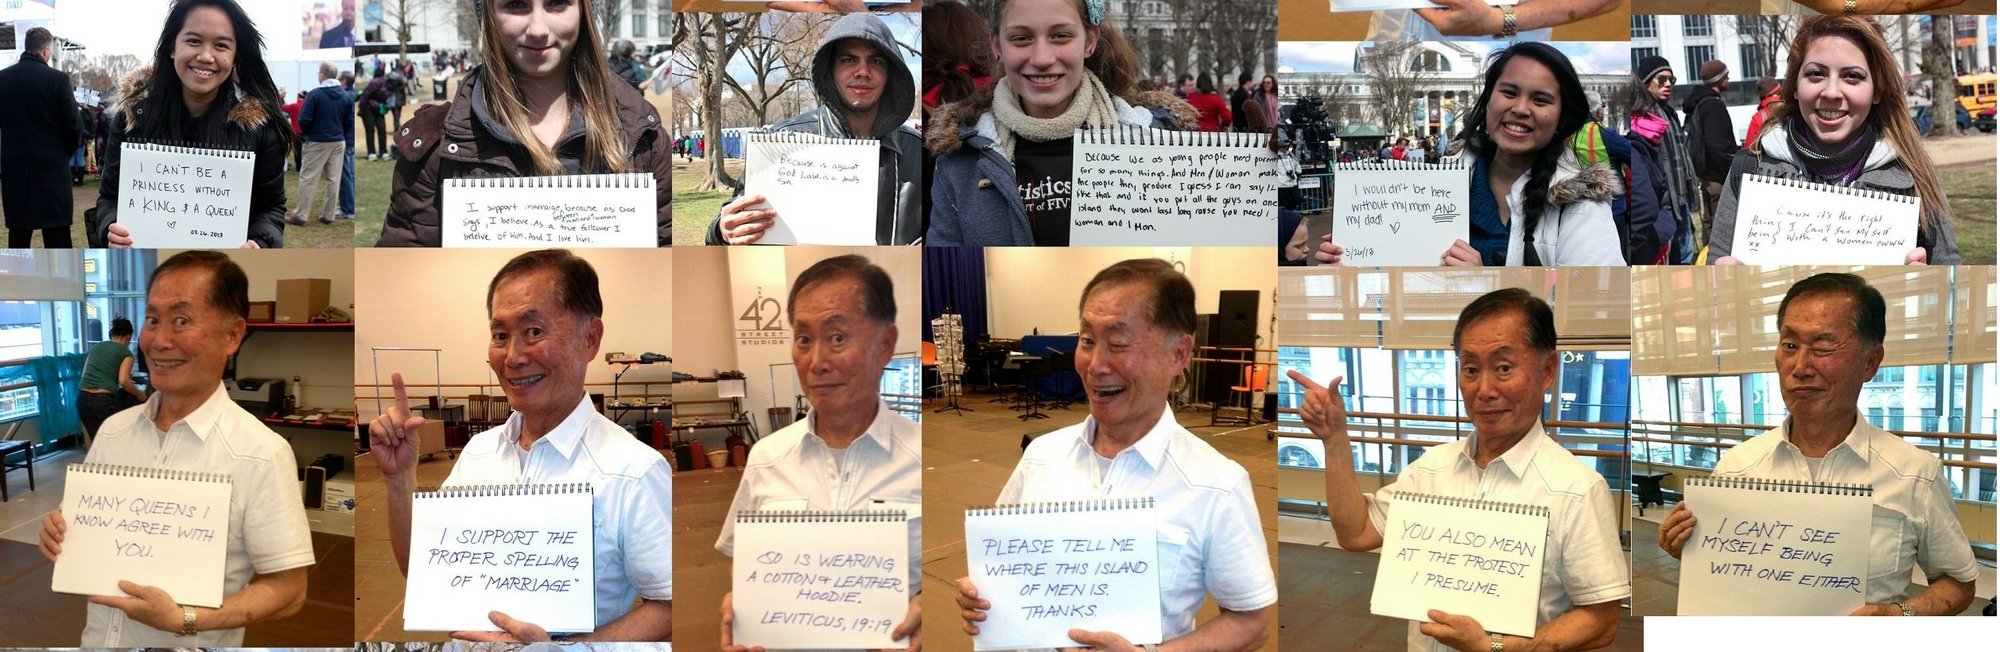 DAD
I CAN'T BE A
PRINCESS WITHOUT
A KING & A QUEEN!
03.26.2013
I support marraige, because as God
says, I believe. As
between
a man and woman
a true follower I
beleive of Him. And I love him.
Because is against
God Law, is a deadly
Sin.
tistics
OUT OF FIVE
Because we as young people need parents
for so many things. And Men & Woman make
the people they produce I guess I can say!!
like that and if you put all the guys on one
island they wont last long cause you need 1
woman and 1 Man.
I wouldn't be here
without my mom AND
my dad!
3/26/13
Cause it's the right
thing I can't see My self
being with a women ewww
xx
MANY QUEENS I
KNOW AGREE WITH
YOU.
I SUPPORT THE
PROPER SPELLING
OF "MARRIAGE"
42
STREET
STUDIOS
SO IS WEARING
A COTTON & LEATHER
HOODIE.
LEVITICUS, 19:19
PLEASE TELL ME
WHERE THIS ISLAND
OF MEN IS.
THANKS.
YOU ALSO MEAN
AT THE PROTEST,
I PRESUME.
I CAN'T SEE
MYSELF BEING
WITH ONE EITHER